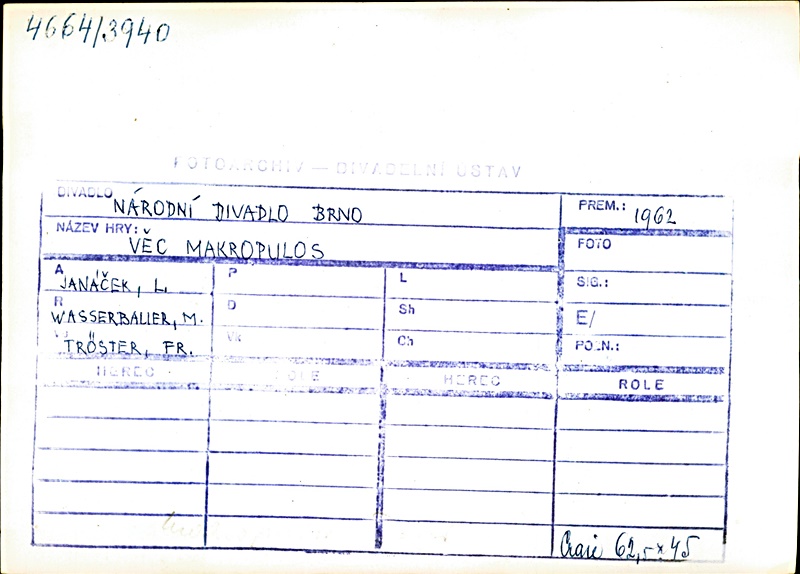 4664/3940
FOTOARCHIV — DIVADELNÍ ÚSTAV
DIVADLO NÁRODNÍ DIVADLO BRNO
PREM.: 1962
NÁZEV HRY: VĚC MAKROPULOS
FOTO
A JANÁČEK, L. P L
SIG.:
R WASSERBAUER, M. D Sh
E/
TRÖSTER, FR. Vk Ch
POZN.:
HEREC ROLE HEREC ROLE
62,5 x 45